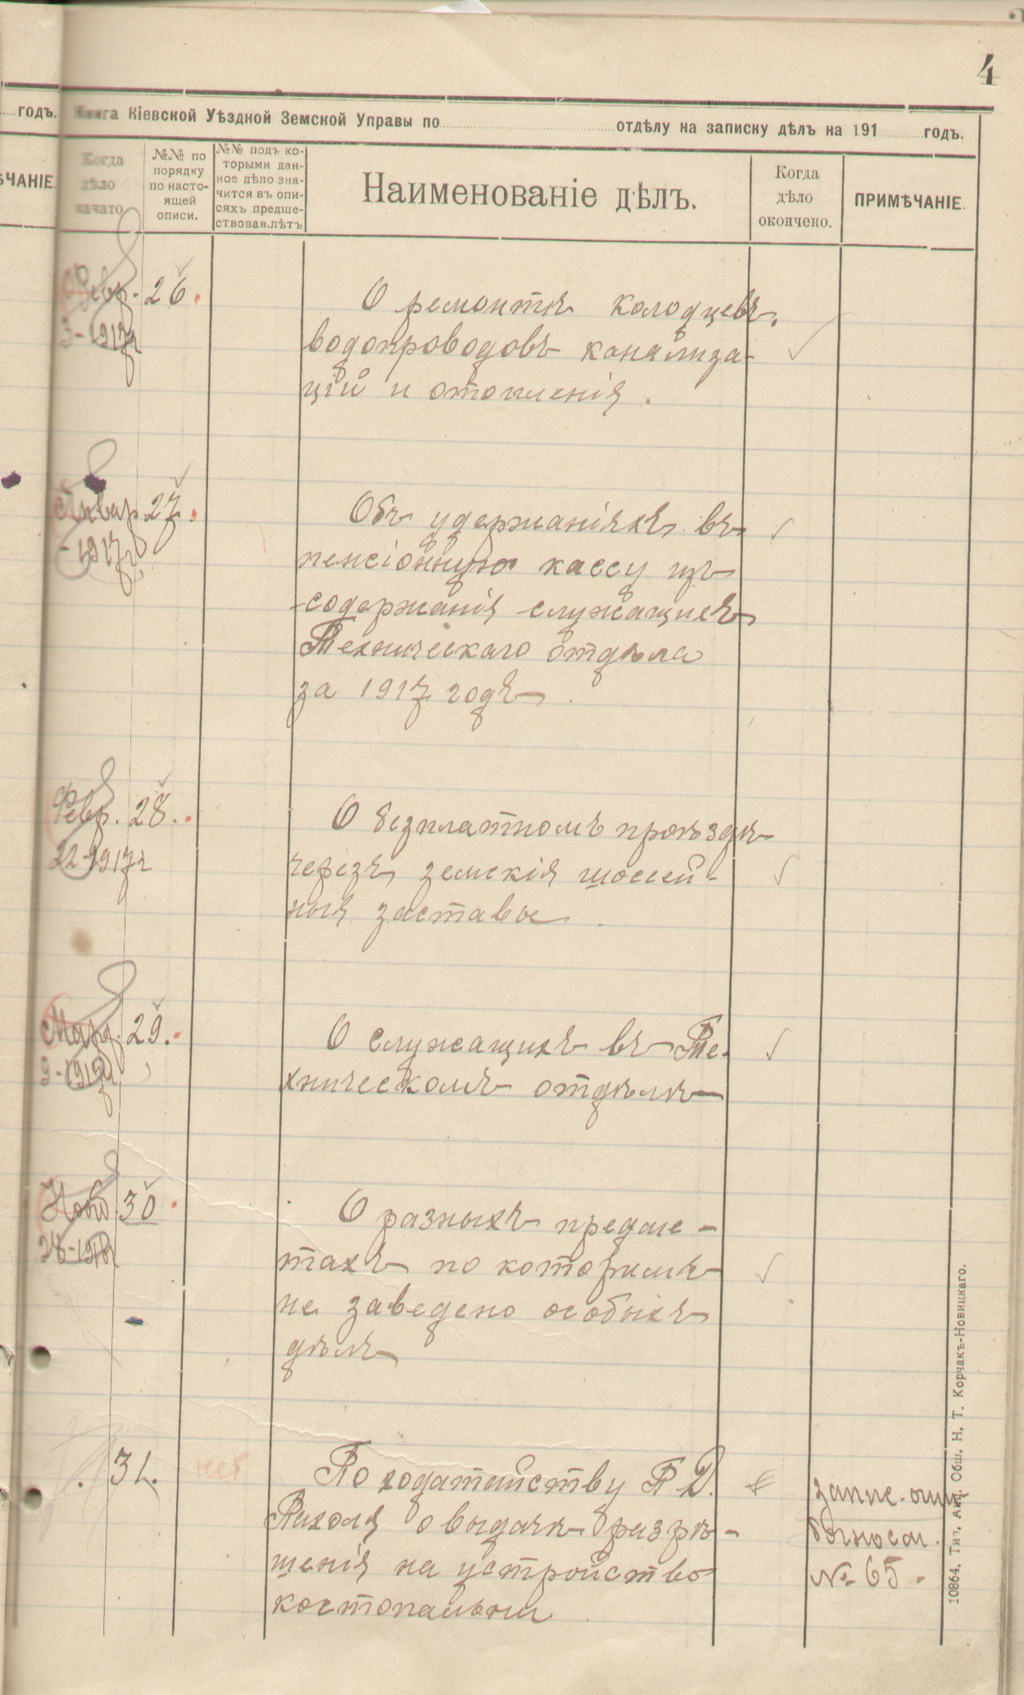 4
годъ.
Книга Кіевской Уѣздной Земской Управы по отдѣлу на записку дѣлъ на 191 годъ.
ѢЧАНІЕ
Когда дѣло начато
№№ по порядку по насто-ящей описи.
№№ подъ ко-торыми дан-ное дѣло зна-чится въ опи-сяхъ предше-ствовав.лѣтъ
Наименованіе дѣлъ.
Когда дѣло окончено.
ПРИМѢЧАНІЕ.
Февр. 26.
3-1917г
О ремонтѣ колодцевъ,
водопроводовъ канализа-
цій и отопленія.
Январ 27.
-1917г
Объ удержаніяхъ въ
пенсіонную кассу изъ
содержанія служащихъ
Техническаго отдѣла
за 1917 годъ
Февр. 28.
22-1917г
О безплатномъ проѣздѣ
черезъ земскія шоссей-
ныя заставы
Мар. 29.
9-191
О служащихъ въ Те-
хническомъ отдѣлѣ
30
28-191
О разныхъ предме-
тахъ по которымъ
не заведено особыхъ
дѣлъ
31.
нет
По ходатайству П Д.
Рихоля о выдачѣ разрѣ-
шенія на устройство
костопальни
запис.
№ 65.
10864. Тип. Акц. Общ. Н. Т. Корчакъ-Новицкаго.